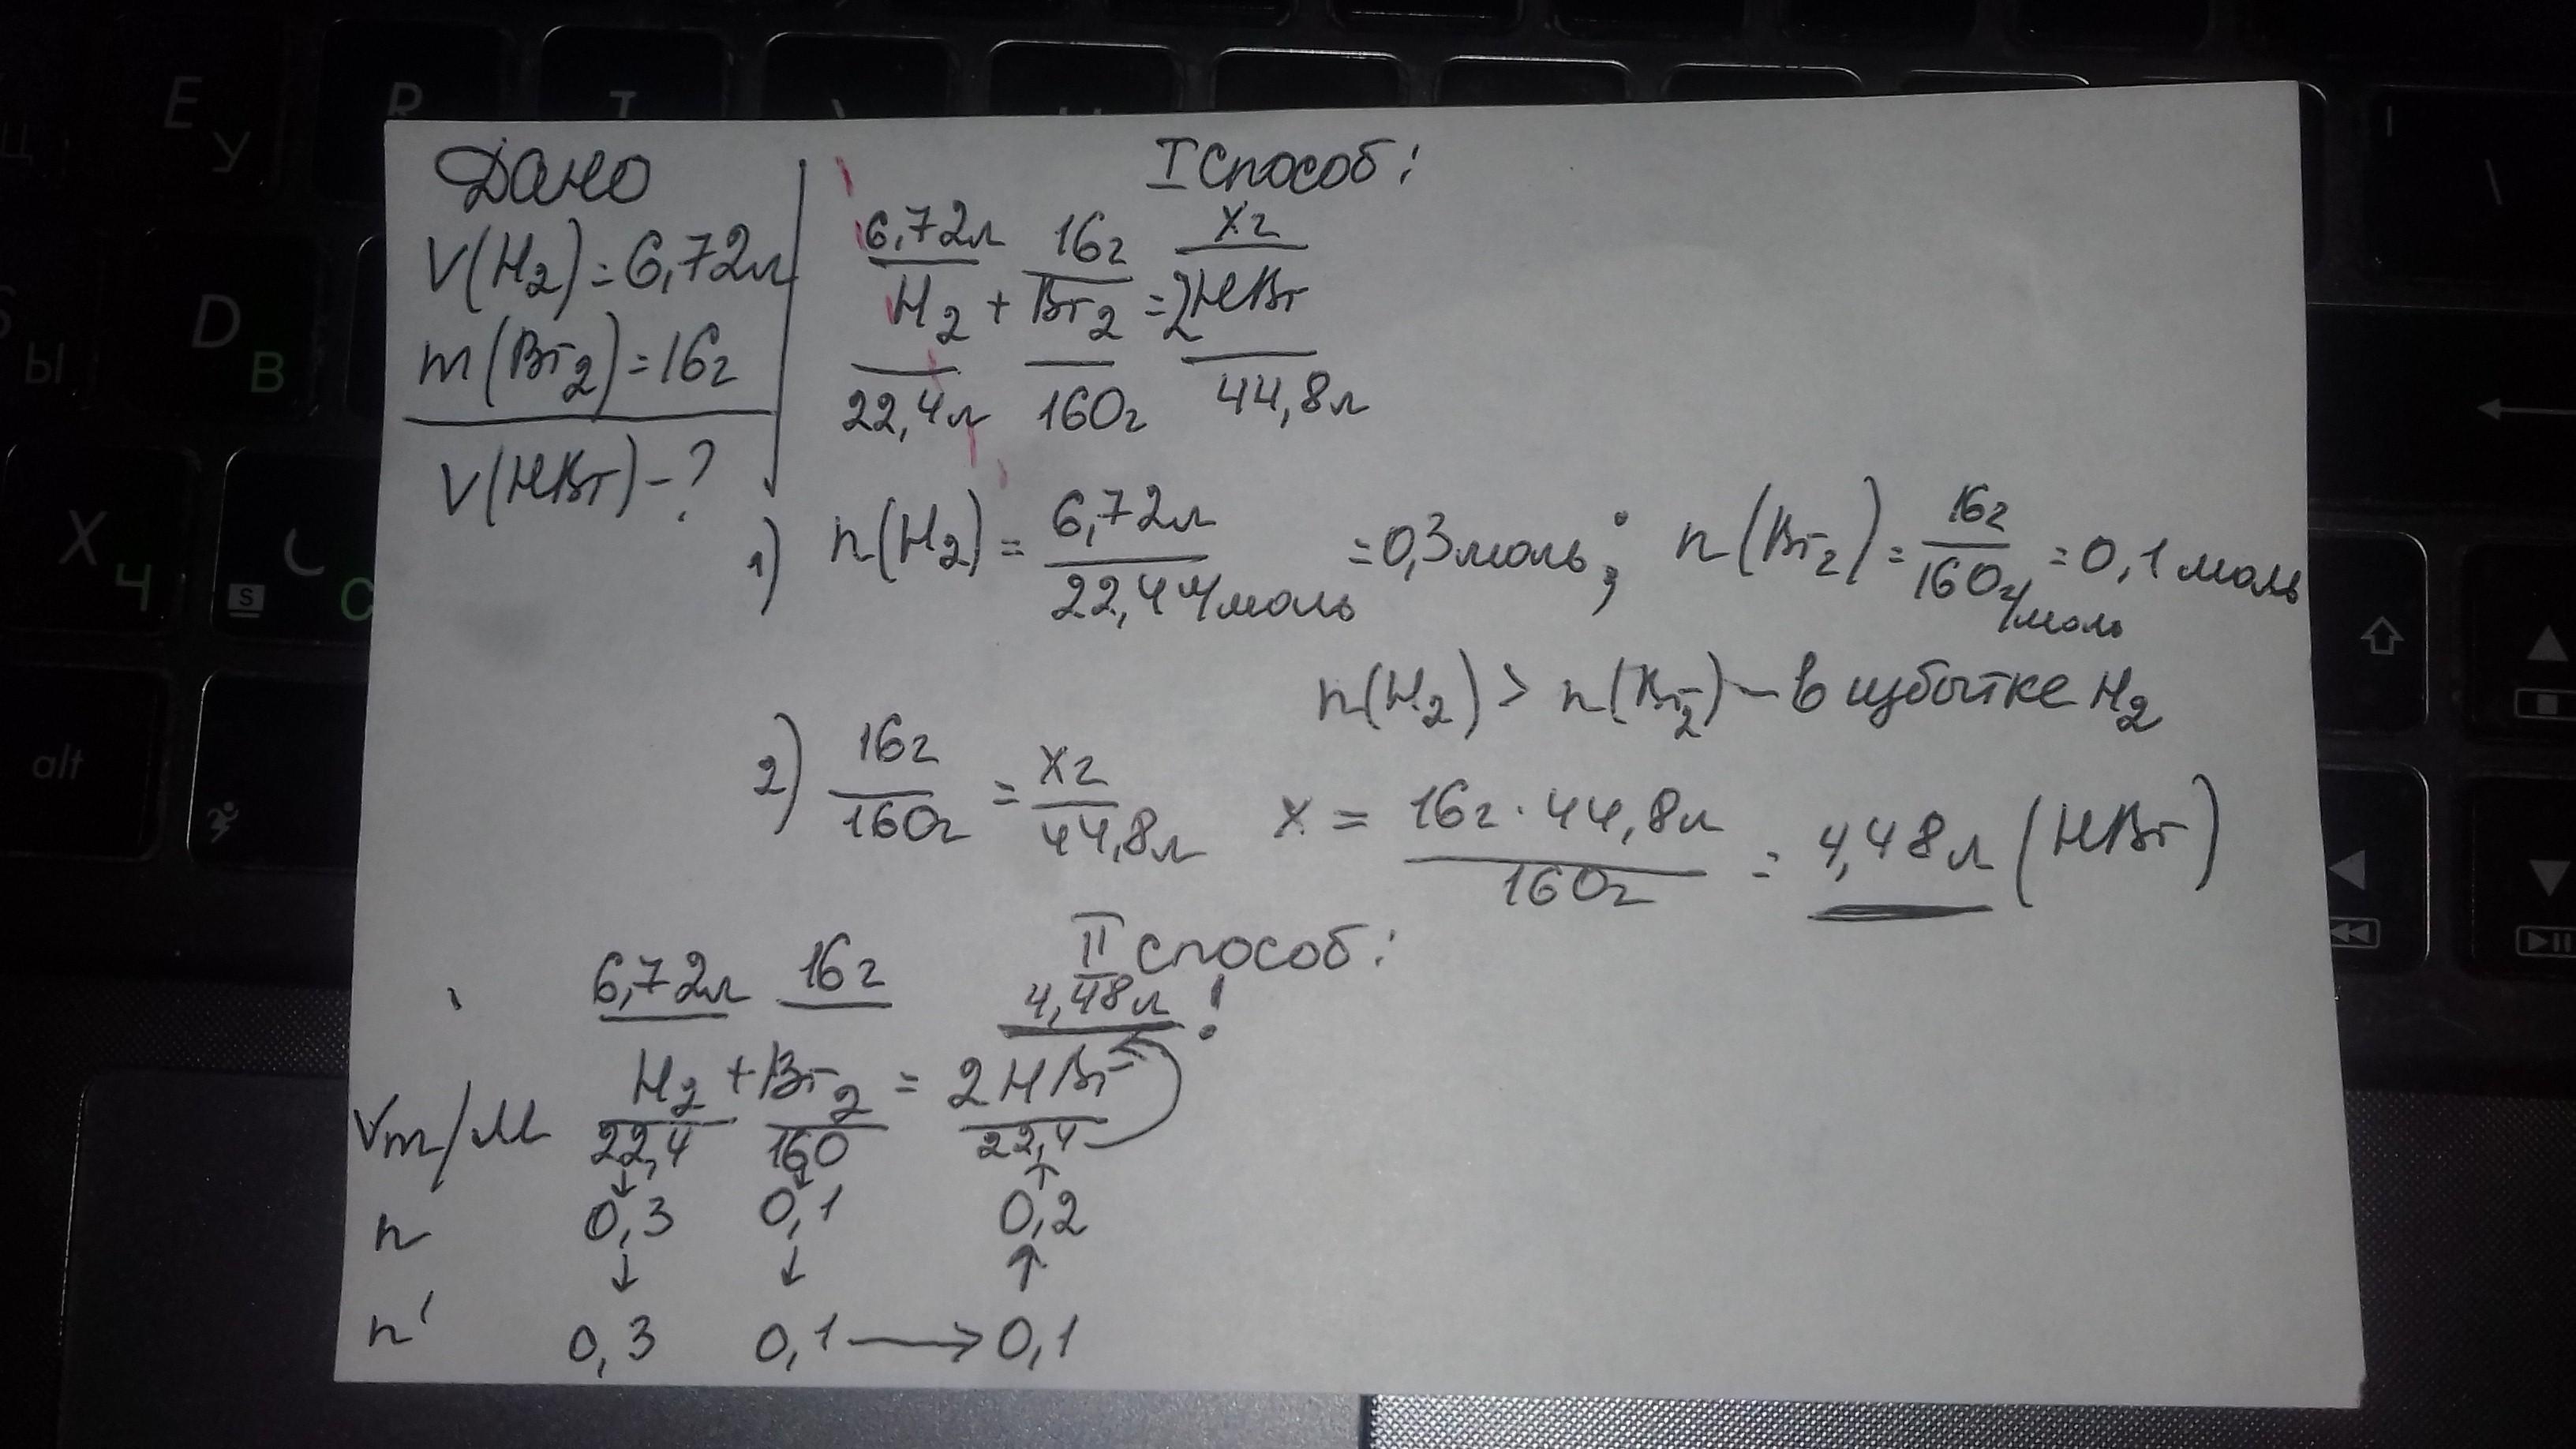 Е У R T
D В
Ы
X Ч С
S
alt
Дано
V(H2)=6,72л
m(Br2)=16г
V(HBr)-?
I Способ:
6,72л 16г xг
H2 + Br2 = 2HBr
22,4л 160г 44,8л
1) n(H2) = 6,72л / 22,4л/моль = 0,3моль; n(Br2) = 16г / 160г/моль = 0,1моль
n(H2) > n(Br2) - в избытке H2
2) 16г / 160г = xг / 44,8л x = 16г · 44,8л / 160г = 4,48л (HBr)
II способ:
6,72л 16г 4,48л !
H2 + Br2 = 2HBr
Vm/M 22,4 160 22,4
↓ ↓ ↑
n 0,3 0,1 0,2
↓ ↓ ↑
n' 0,3 0,1 → 0,1